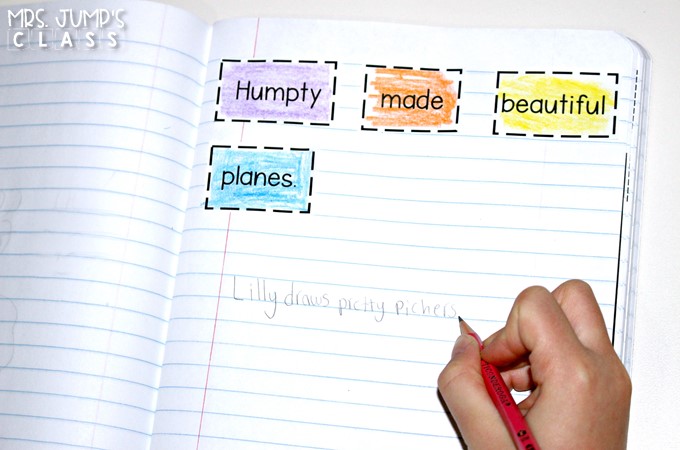 MRS. JUMP'S
CLASS
Humpty made beautiful
planes.
Lilly draws pretty pichers.